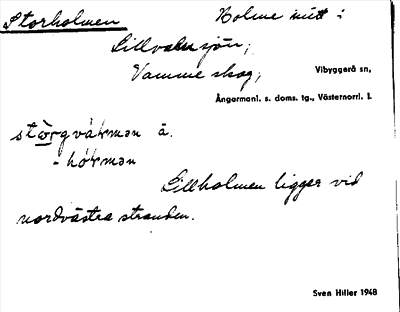 Storholmen Holme mitt i
Lillvalsjön,
Vamme skog, Vibyggerå sn,
Ångermanl. s. doms. tg., Västernorrl. l.
å.
Lillholmen ligger vid
nordvästra stranden.
Sven Hiller 1948